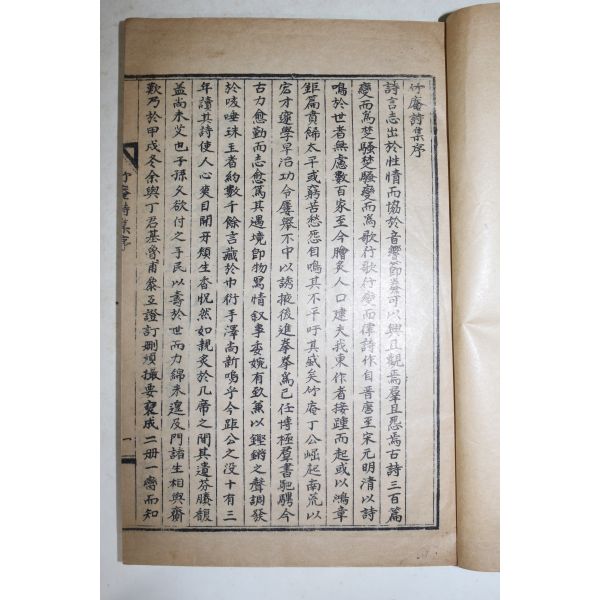 竹庵詩集序
詩言志出於性情而協於音響節奏可以興且觀焉羣且怨焉古詩三百篇
變而爲楚騷楚騷變而爲歌行歌行變而律詩作自晉唐至宋元明清以詩
鳴於世者無慮數百家至今膾炙人口建夫我東作者接踵而起或以鴻章
鉅篇賁餙太平或窮苦愁怨自鳴其不平吁其盛矣竹庵丁公崛起南荒以
宏才邃學早治功令屢擧不中以誘掖後進拳拳爲己任博極羣書馳騁今
古力愈勤而志愈篤其遇境卽物寫情叙事委婉有致兼以鏗鏘之聲調發
於咳唾珠玉者約數千餘言藏於巾衍手澤尚新嗚乎今距公之没十有三
年讀其詩使人心爽目開牙頰生香怳然如親炙於几席之間其遺芬賸馥
益尚未艾也子孫又欲付之手民以壽於世而力綿未遑及門諸生相與齎
歎乃於甲戌冬余與丁君基魯甫叅互證訂删煩撮要裒成二册一臠而知
竹庵詩集序
一